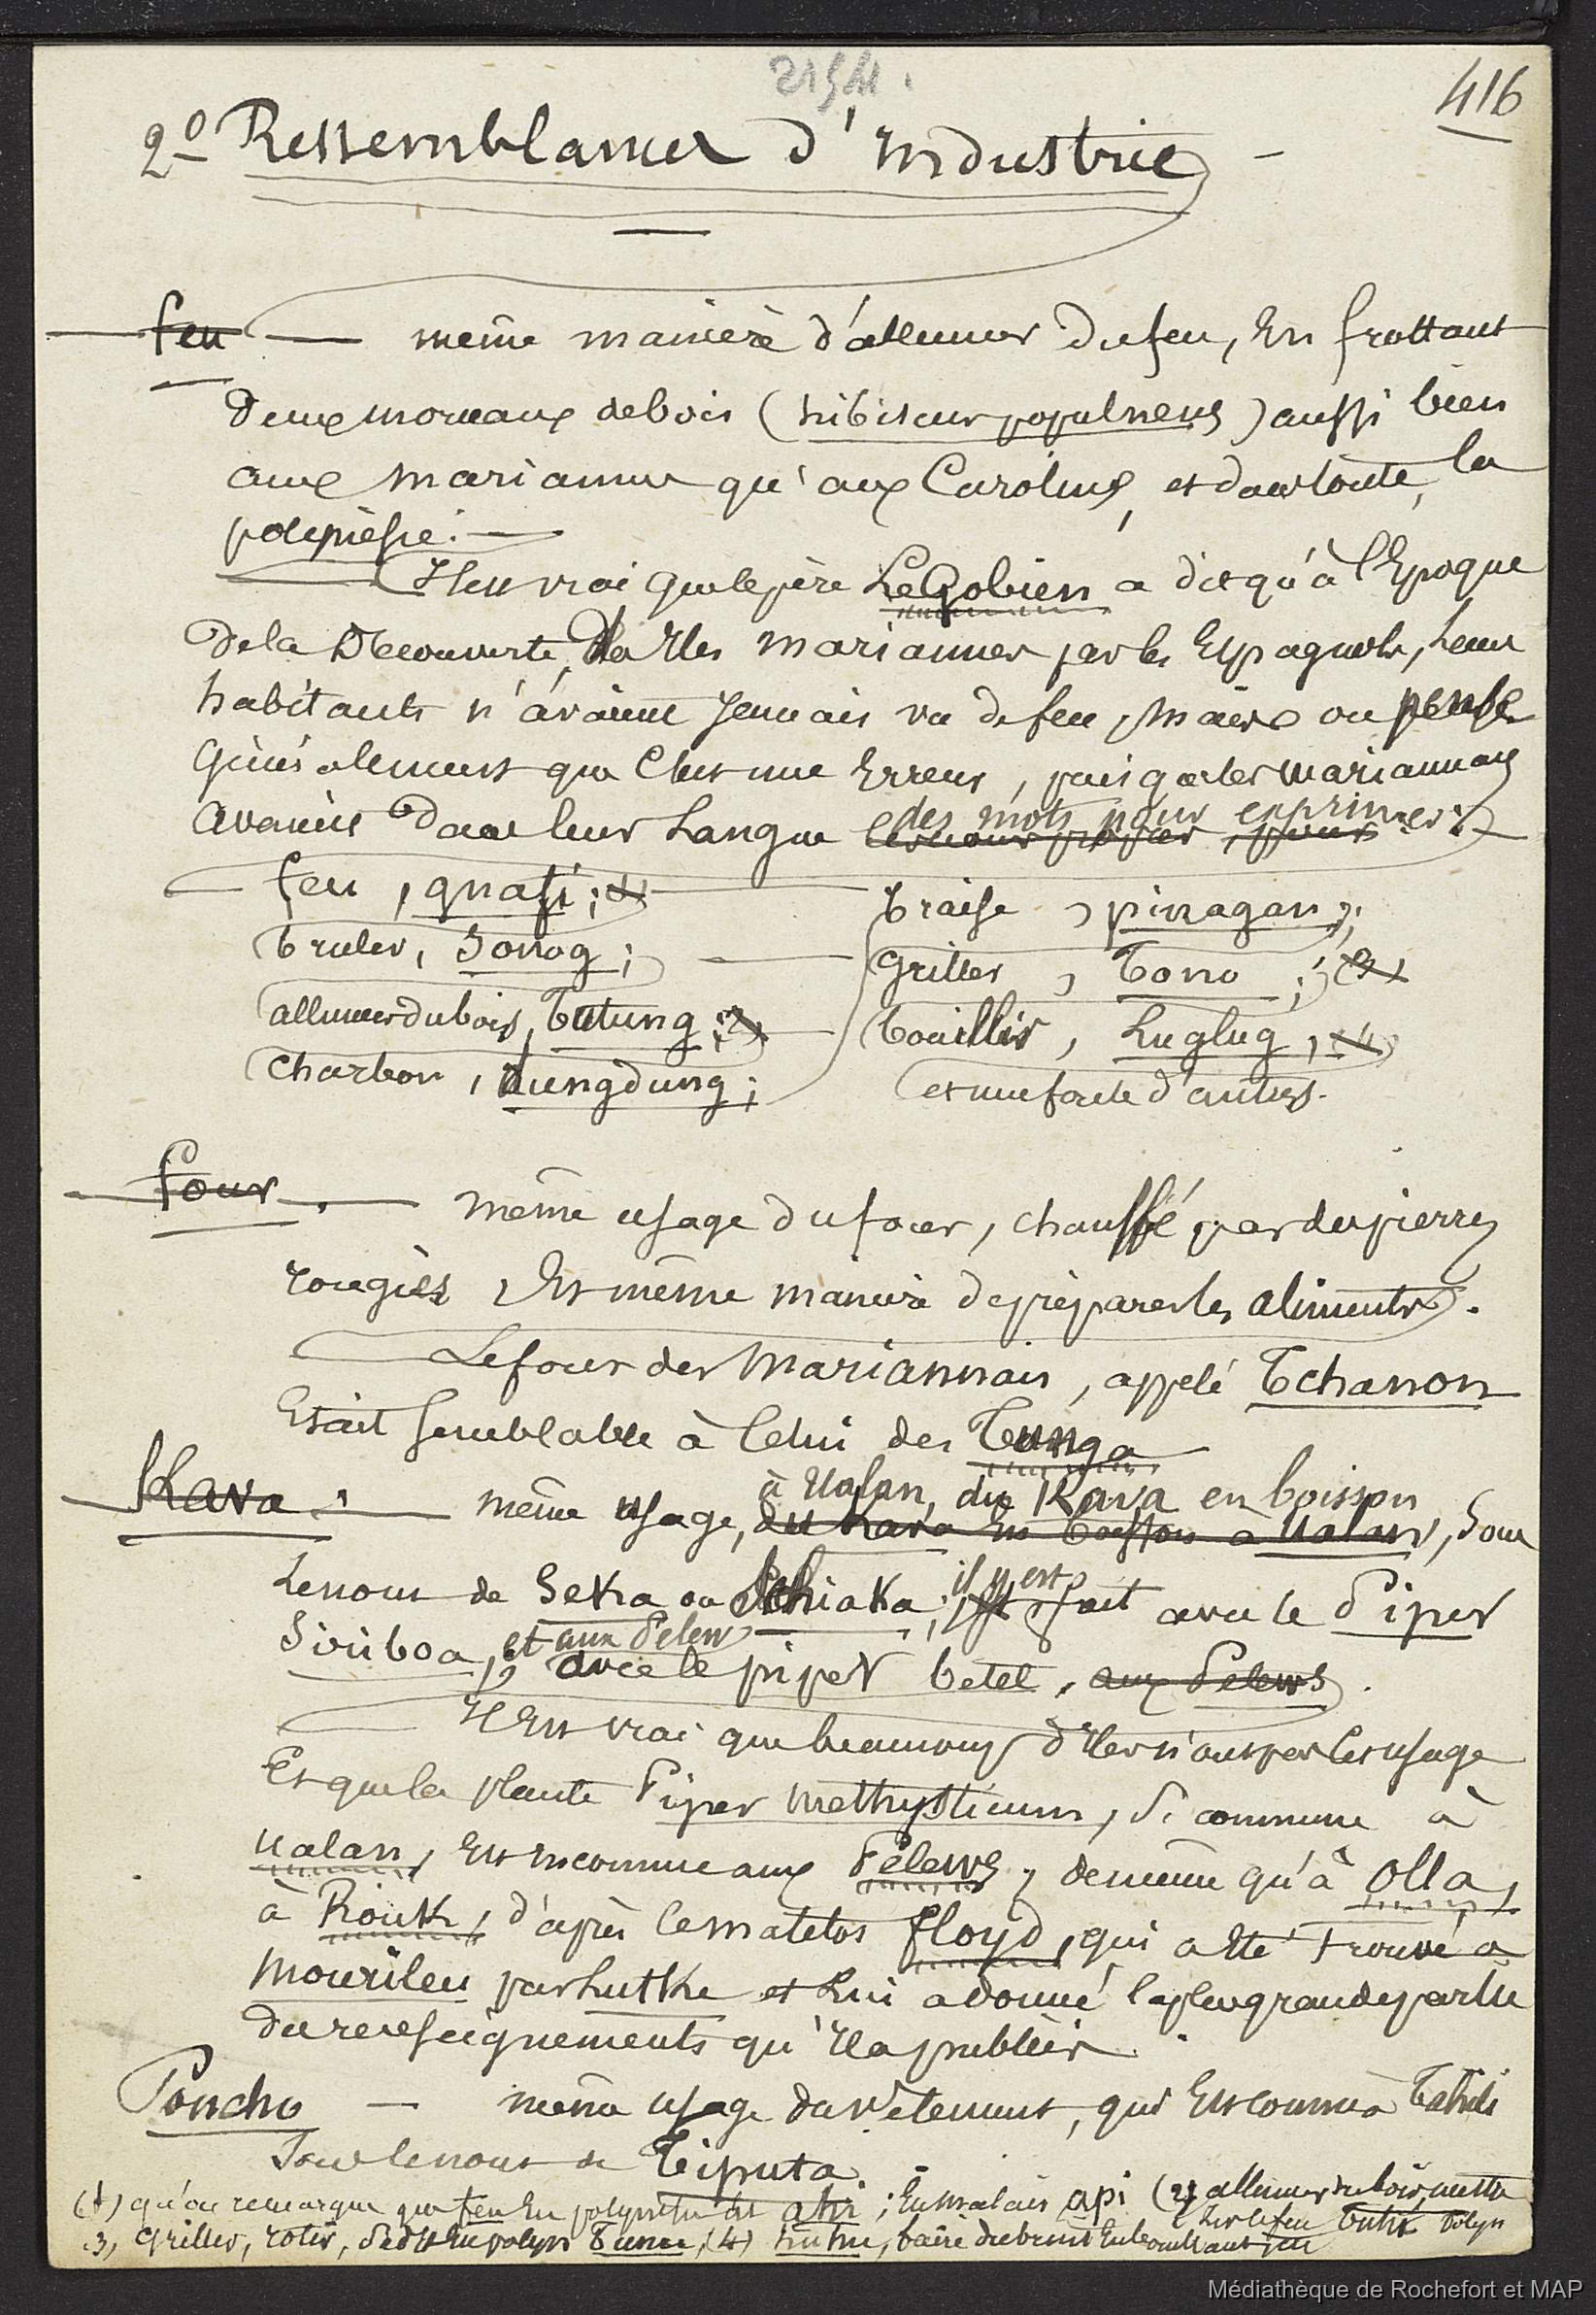 416
2º Ressemblances d'industrie -
feu — même manière d'allumer du feu, en frottant
deux morceaux de bois (hibiscus populneus) aussi bien
aux mariannes qu'aux Carolines, et dans toute la
polynésie. —
Il est vrai que le père Le Gobien a dit qu'à l'Epoque
de la Découverte, des Iles mariannes par les Espagnols, leurs
habitants n'avaient jamais vu de feu, mais on pense
généralement que c'est une Erreur, puisque les mariannais
avaient dans leur Langue des mots pour exprimer :
feu, guafi; (1)
bruler, Sonog;
allumer du bois, Tutung; (2)
charbon, dungdung;
braise, pinagan;
Griller, Tono; (3)
bouillir, Luglug, (4)
et une foule d'autres.
four. — même usage du four, chauffé par des pierres
rougies, Et même manière de préparer les aliments.
Le four des Mariannais, appelé Tchanon
Etait semblable à Celui des Tunga
Kava. — même usage, à Ualan, du Kava en boisson, sous
Le nom de Seka ou Schiaka; il y est fait avec le Piper
Siriboa, et aux Pelew avec le piper betel, aux Pelews.
Il Est vrai que beaucoup d'Iles n'ont pas cet usage
Et que la plante Piper methysticum, si commune à
Ualan, Est inconnue aux Pelews, de même qu'à Olla,
à Rouk, d'après le matelos floyd, qui a Eté trouvé à
Mourileu par Lutke et Lui a donné la plus grande partie
des renseignements qu'il a publiés.
Poncho — même usage du vêtement, qui Est connu à Tahiti
Sous le nom de Tiputa.
(1) qu'on remarque que feu En polynésien dit ahi; En malais api (2) allumer du bois, mettre
le feu Tutu polyn
3, Griller, rotir, se dit En polyn Tunu, (4) huhu, faire du bruit En bouillant
Médiathèque de Rochefort et MAP